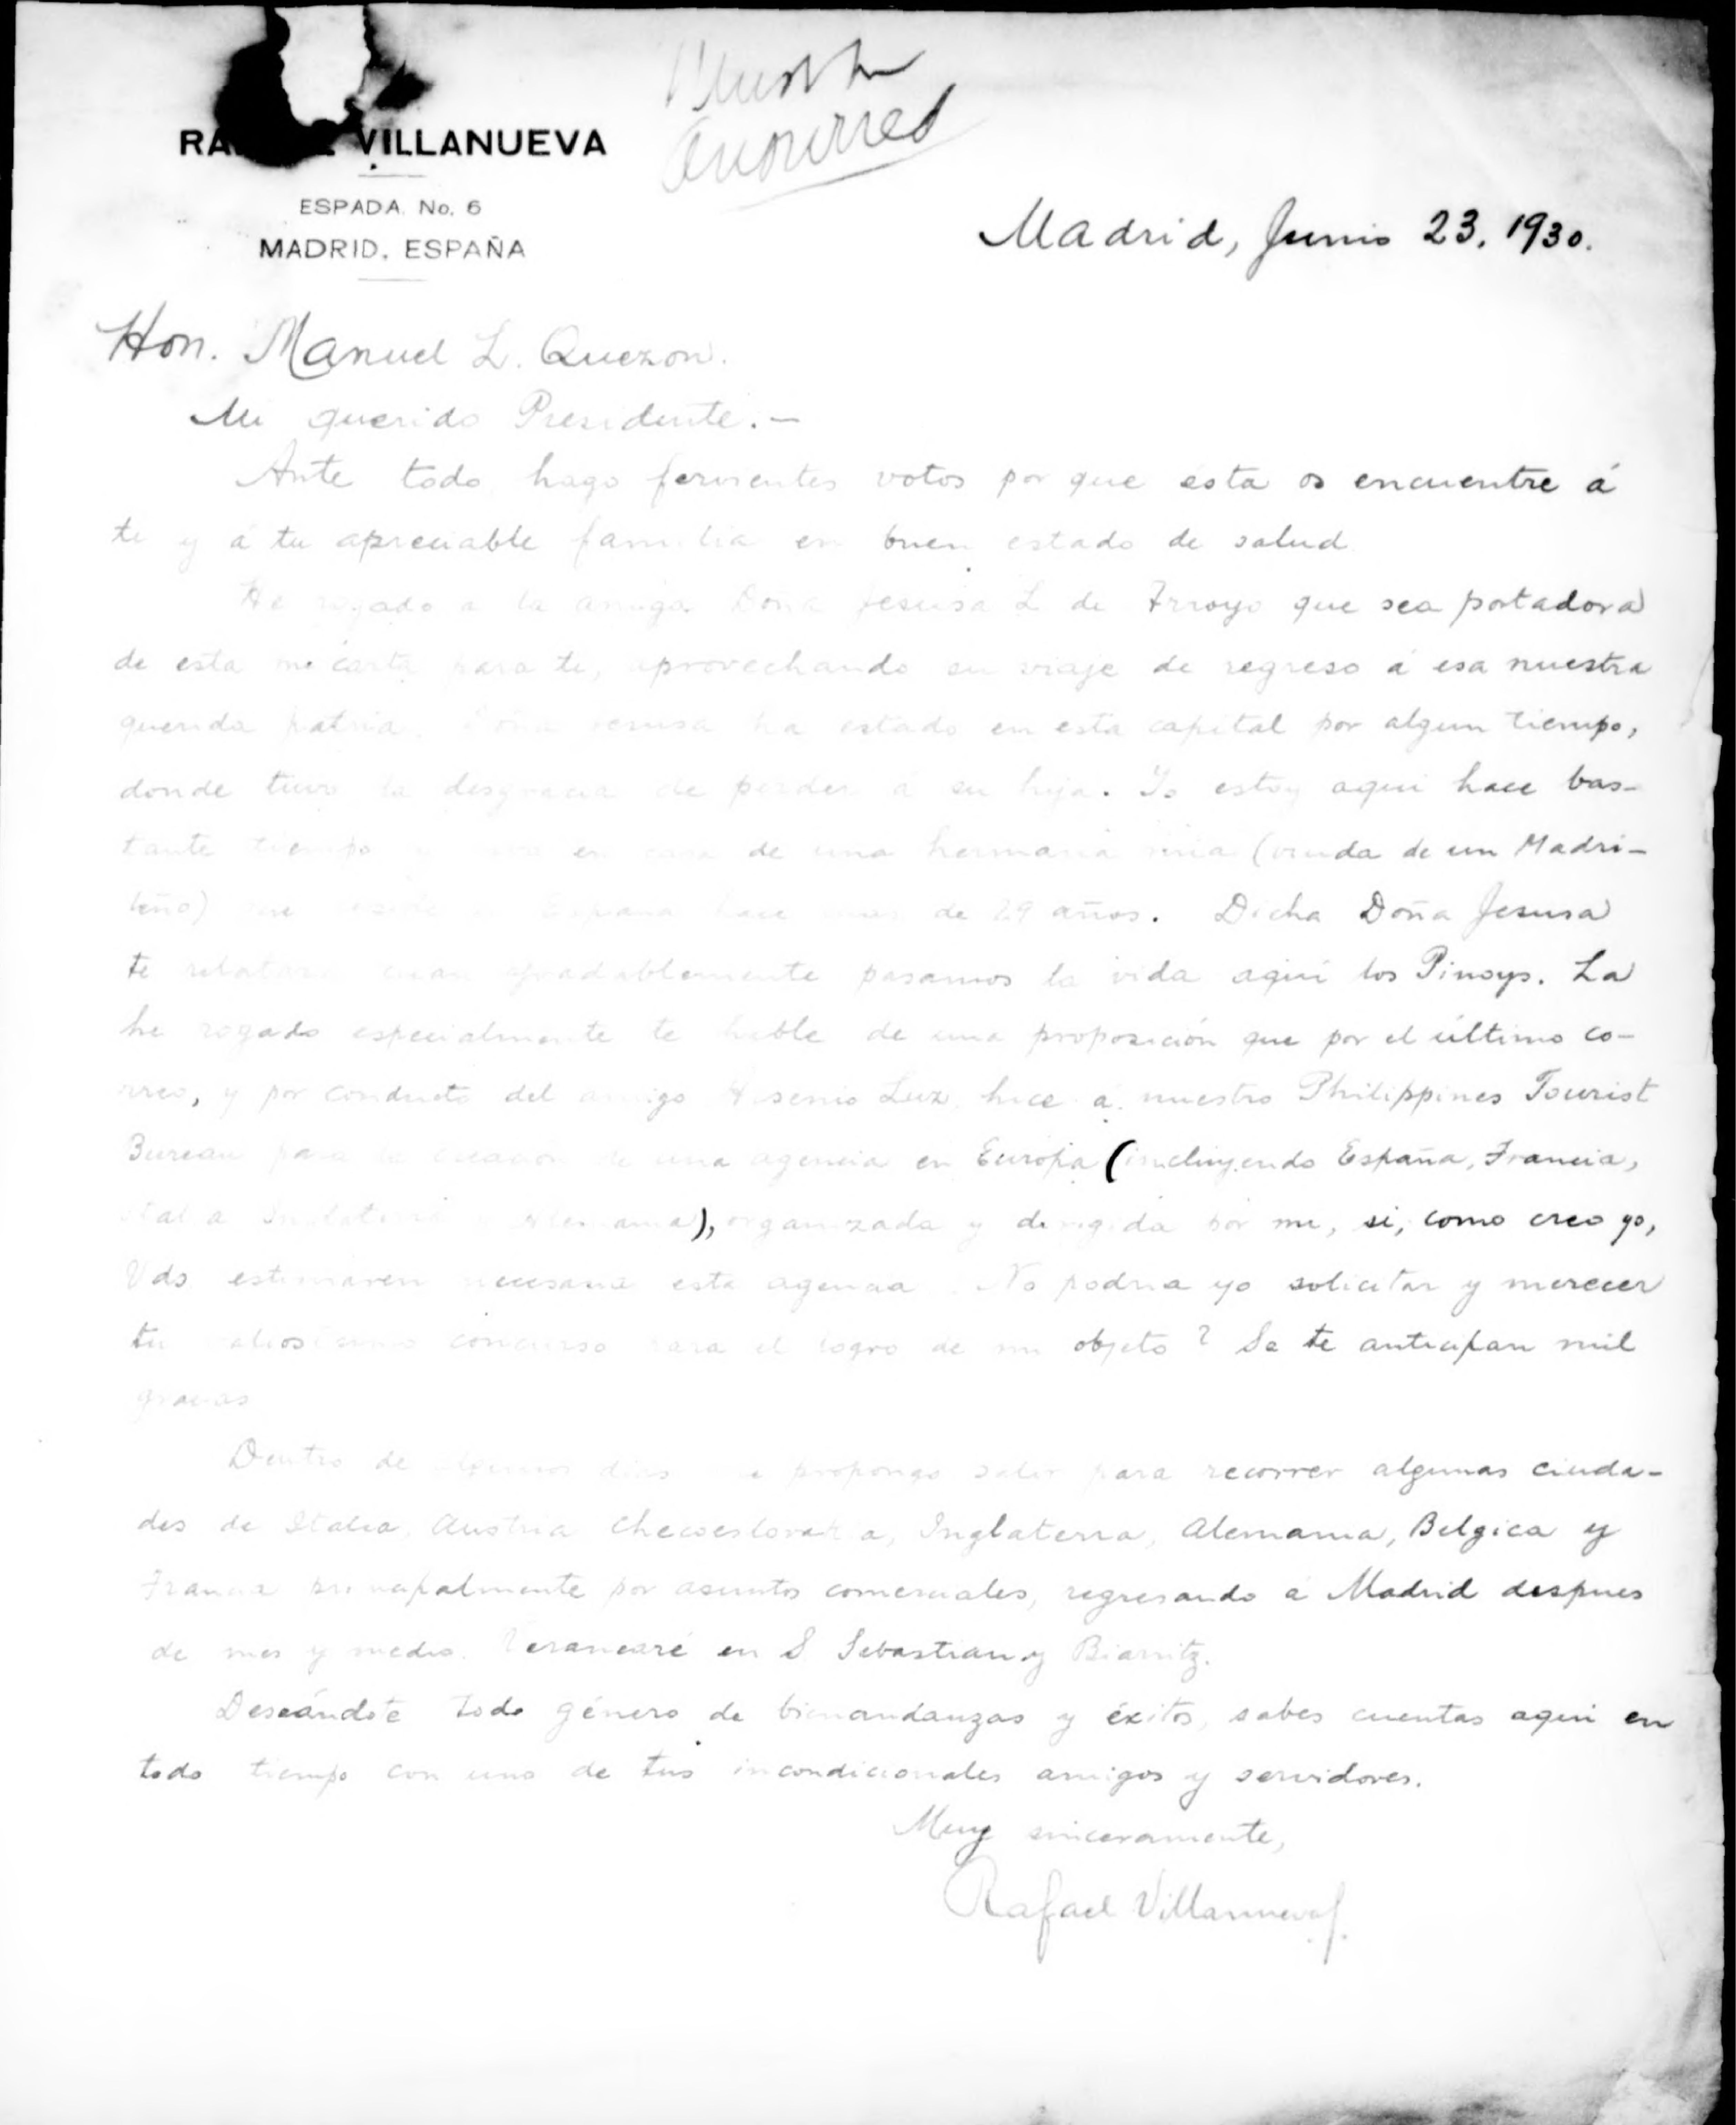 VILLANUEVA
ESPADA. No. 6
MADRID, ESPAÑA
Madrid, Junio 23, 1930.
Hon. Manuel L. Quezon.
Mi querido Presidente.—
Ante todo hago fervientes votos por que ésta os encuentre á
ti y á tu apreciable familia en buen estado de salud
He rogado a la amiga Doña Jesusa L de Arroyo que sea portadora
de esta mi carta para ti, aprovechando su viaje de regreso á esa nuestra
querida patria. Doña Jesusa ha estado en esta capital por algun tiempo,
donde tuvo la desgracia de perder á su hija. Yo estoy aqui hace bas-
tante tiempo y en casa de una hermana mia (viuda de un Madri-
leño) que reside en España hace mas de 29 años. Dicha Doña Jesusa
te relatará cuan agradablemente pasamos la vida aquí los Pinoys. La
he rogado especialmente te hable de una proposición que por el último co-
rreo, y por conducto del amigo Arsenio Luz, hice á nuestro Philippines Tourist
Bureau para la creación de una agencia en Europa (incluyendo España, Francia,
Italia Inglaterra y Alemania), organizada y dirigida por mi, si, como creo yo,
Vds estimaren necesaria esta agencia. No podria yo solicitar y merecer
tu valiosísimo concurso para el logro de mi objeto? Se te anticipan mil
gracias
Dentro de algunos dias me propongo salir para recorrer algunas ciuda-
des de Italia, Austria Checoeslovakia, Inglaterra, Alemania, Belgica y
Francia principalmente por asuntos comerciales, regresando á Madrid despues
de mes y medio. Veranearé en S Sebastian y Biarritz.
Deseándote todo género de bienandanzas y éxitos, sabes cuentas aqui en
todo tiempo con uno de tus incondicionales amigos y servidores.
Muy sinceramente,
Rafael Villanueva